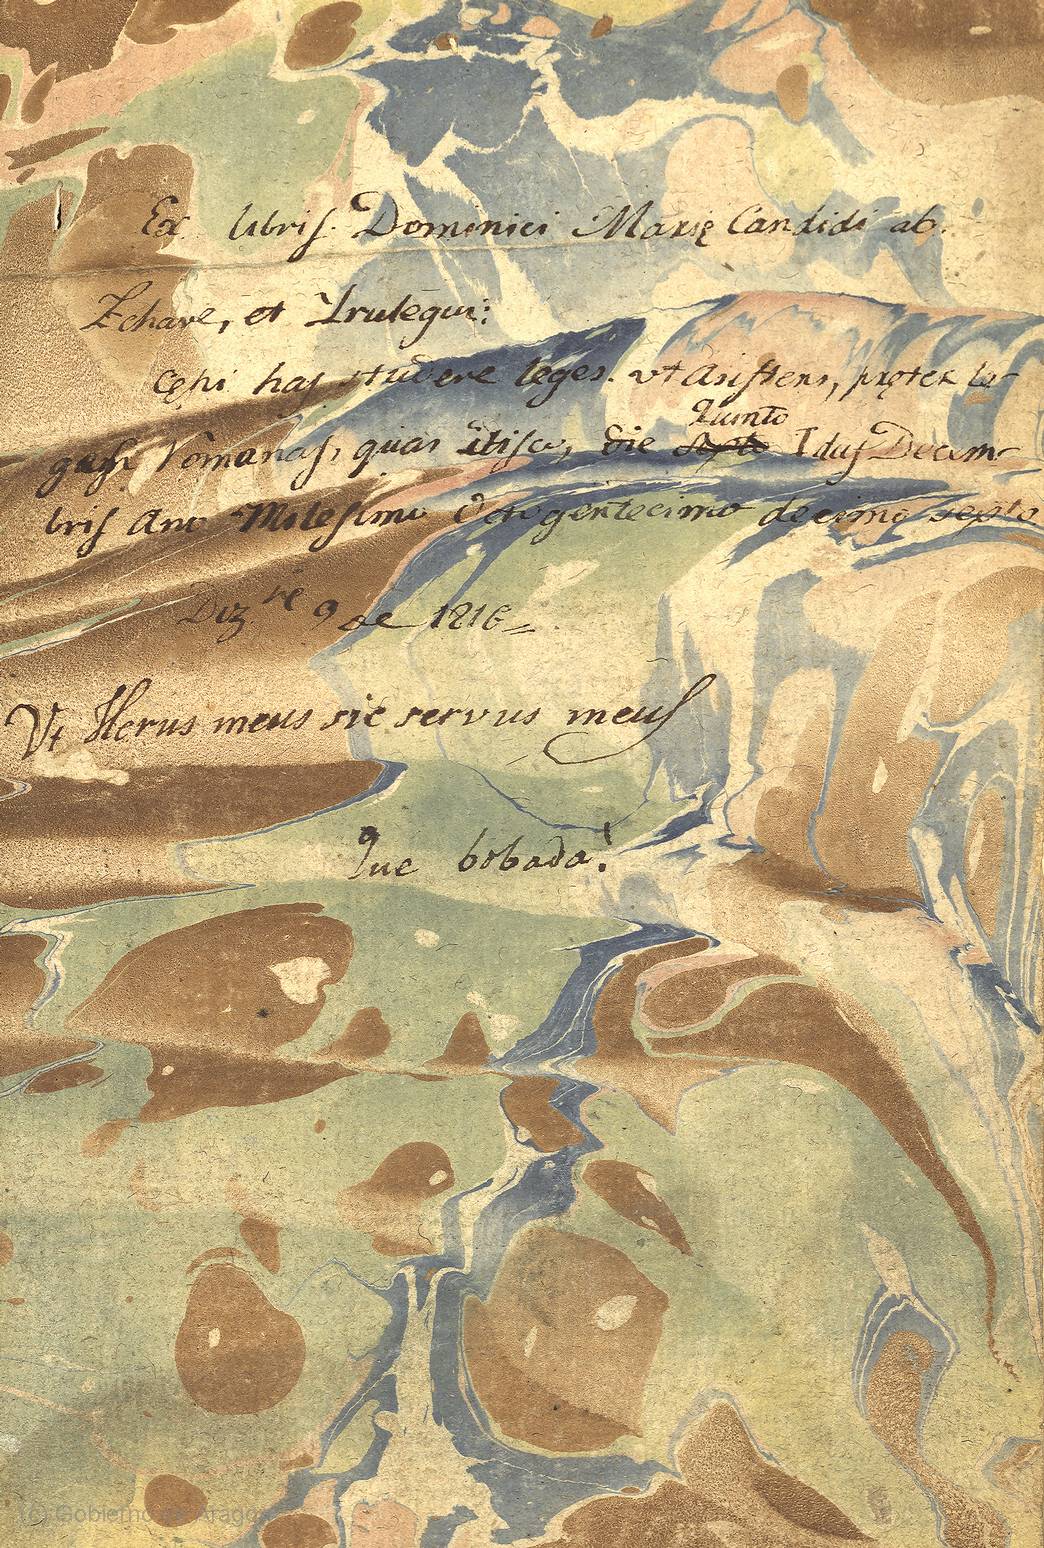 Ex libris Dominici Marię Candidi ab.
Echave, et Yrutegui:
Cępi has studere leges. vt asistens, pręter le-
ges Romanas, quas
Quinto
die septo Idus Decem-
bris Ano Milesimo Octogentecimo decimo septo
Diz.re 9 de 1816
Vt Herus meus sic servus meus
Que bobada!
(c) Gobierno de Aragón